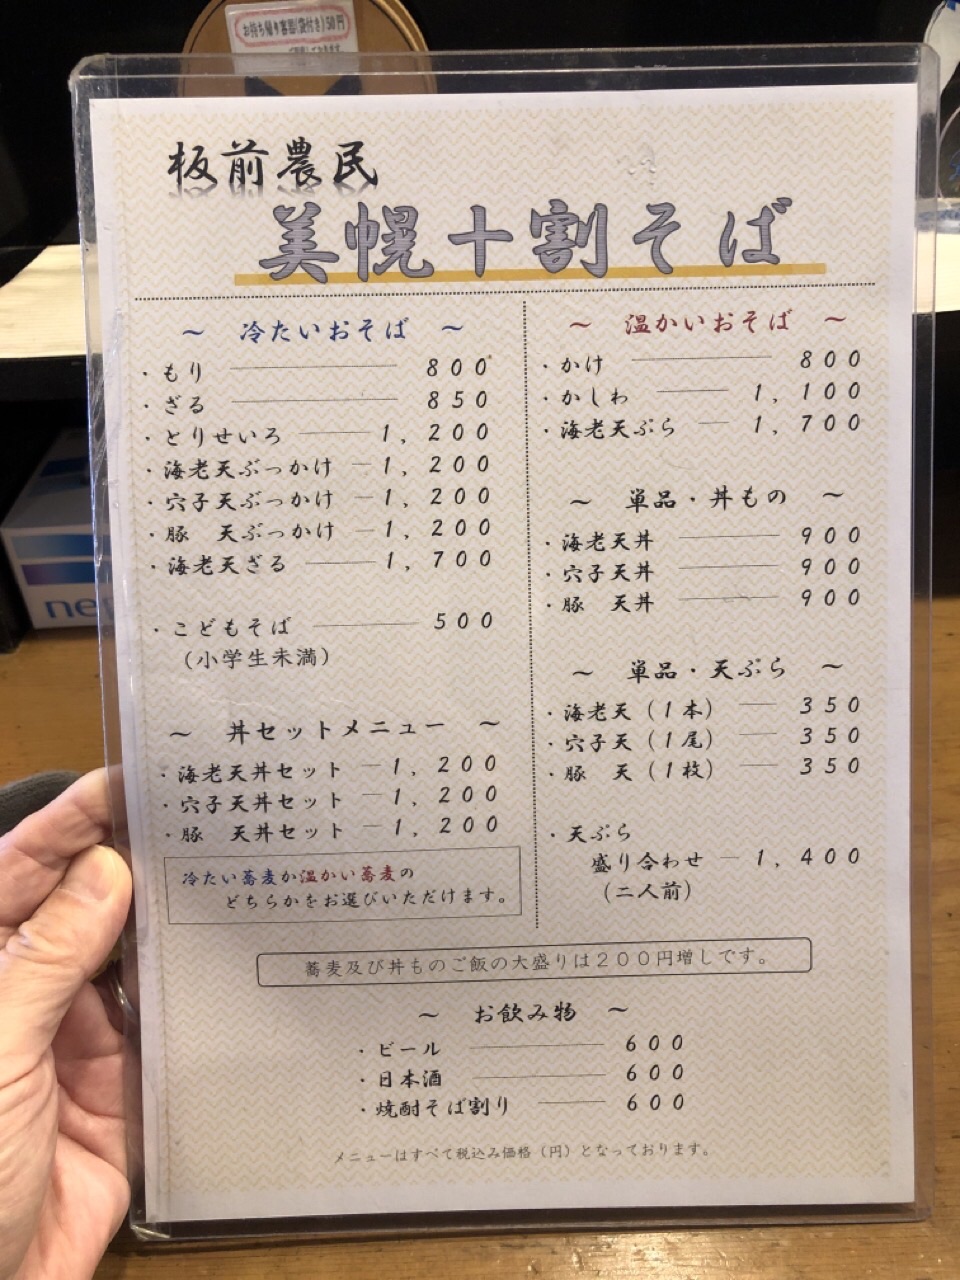 お持ち帰り容器(袋付き)50円
板前農民
美幌十割そば
～ 冷たいおそば ～
・もり 800
・ざる 850
・とりせいろ 1,200
・海老天ぶっかけ 1,200
・穴子天ぶっかけ 1,200
・豚 天ぶっかけ 1,200
・海老天ざる 1,700
・こどもそば 500
(小学生未満)
～ 丼セットメニュー ～
・海老天丼セット 1,200
・穴子天丼セット 1,200
・豚 天丼セット 1,200
冷たい蕎麦か温かい蕎麦の
どちらかをお選びいただけます。
～ 温かいおそば ～
・かけ 800
・かしわ 1,100
・海老天ぷら 1,700
～ 単品・丼もの ～
・海老天丼 900
・穴子天丼 900
・豚 天丼 900
～ 単品・天ぷら ～
・海老天(1本) 350
・穴子天(1尾) 350
・豚 天(1枚) 350
・天ぷら
盛り合わせ 1,400
(二人前)
蕎麦及び丼ものご飯の大盛りは200円増しです。
～ お飲み物 ～
・ビール 600
・日本酒 600
・焼酎そば割り 600
メニューはすべて税込み価格(円)となっております。